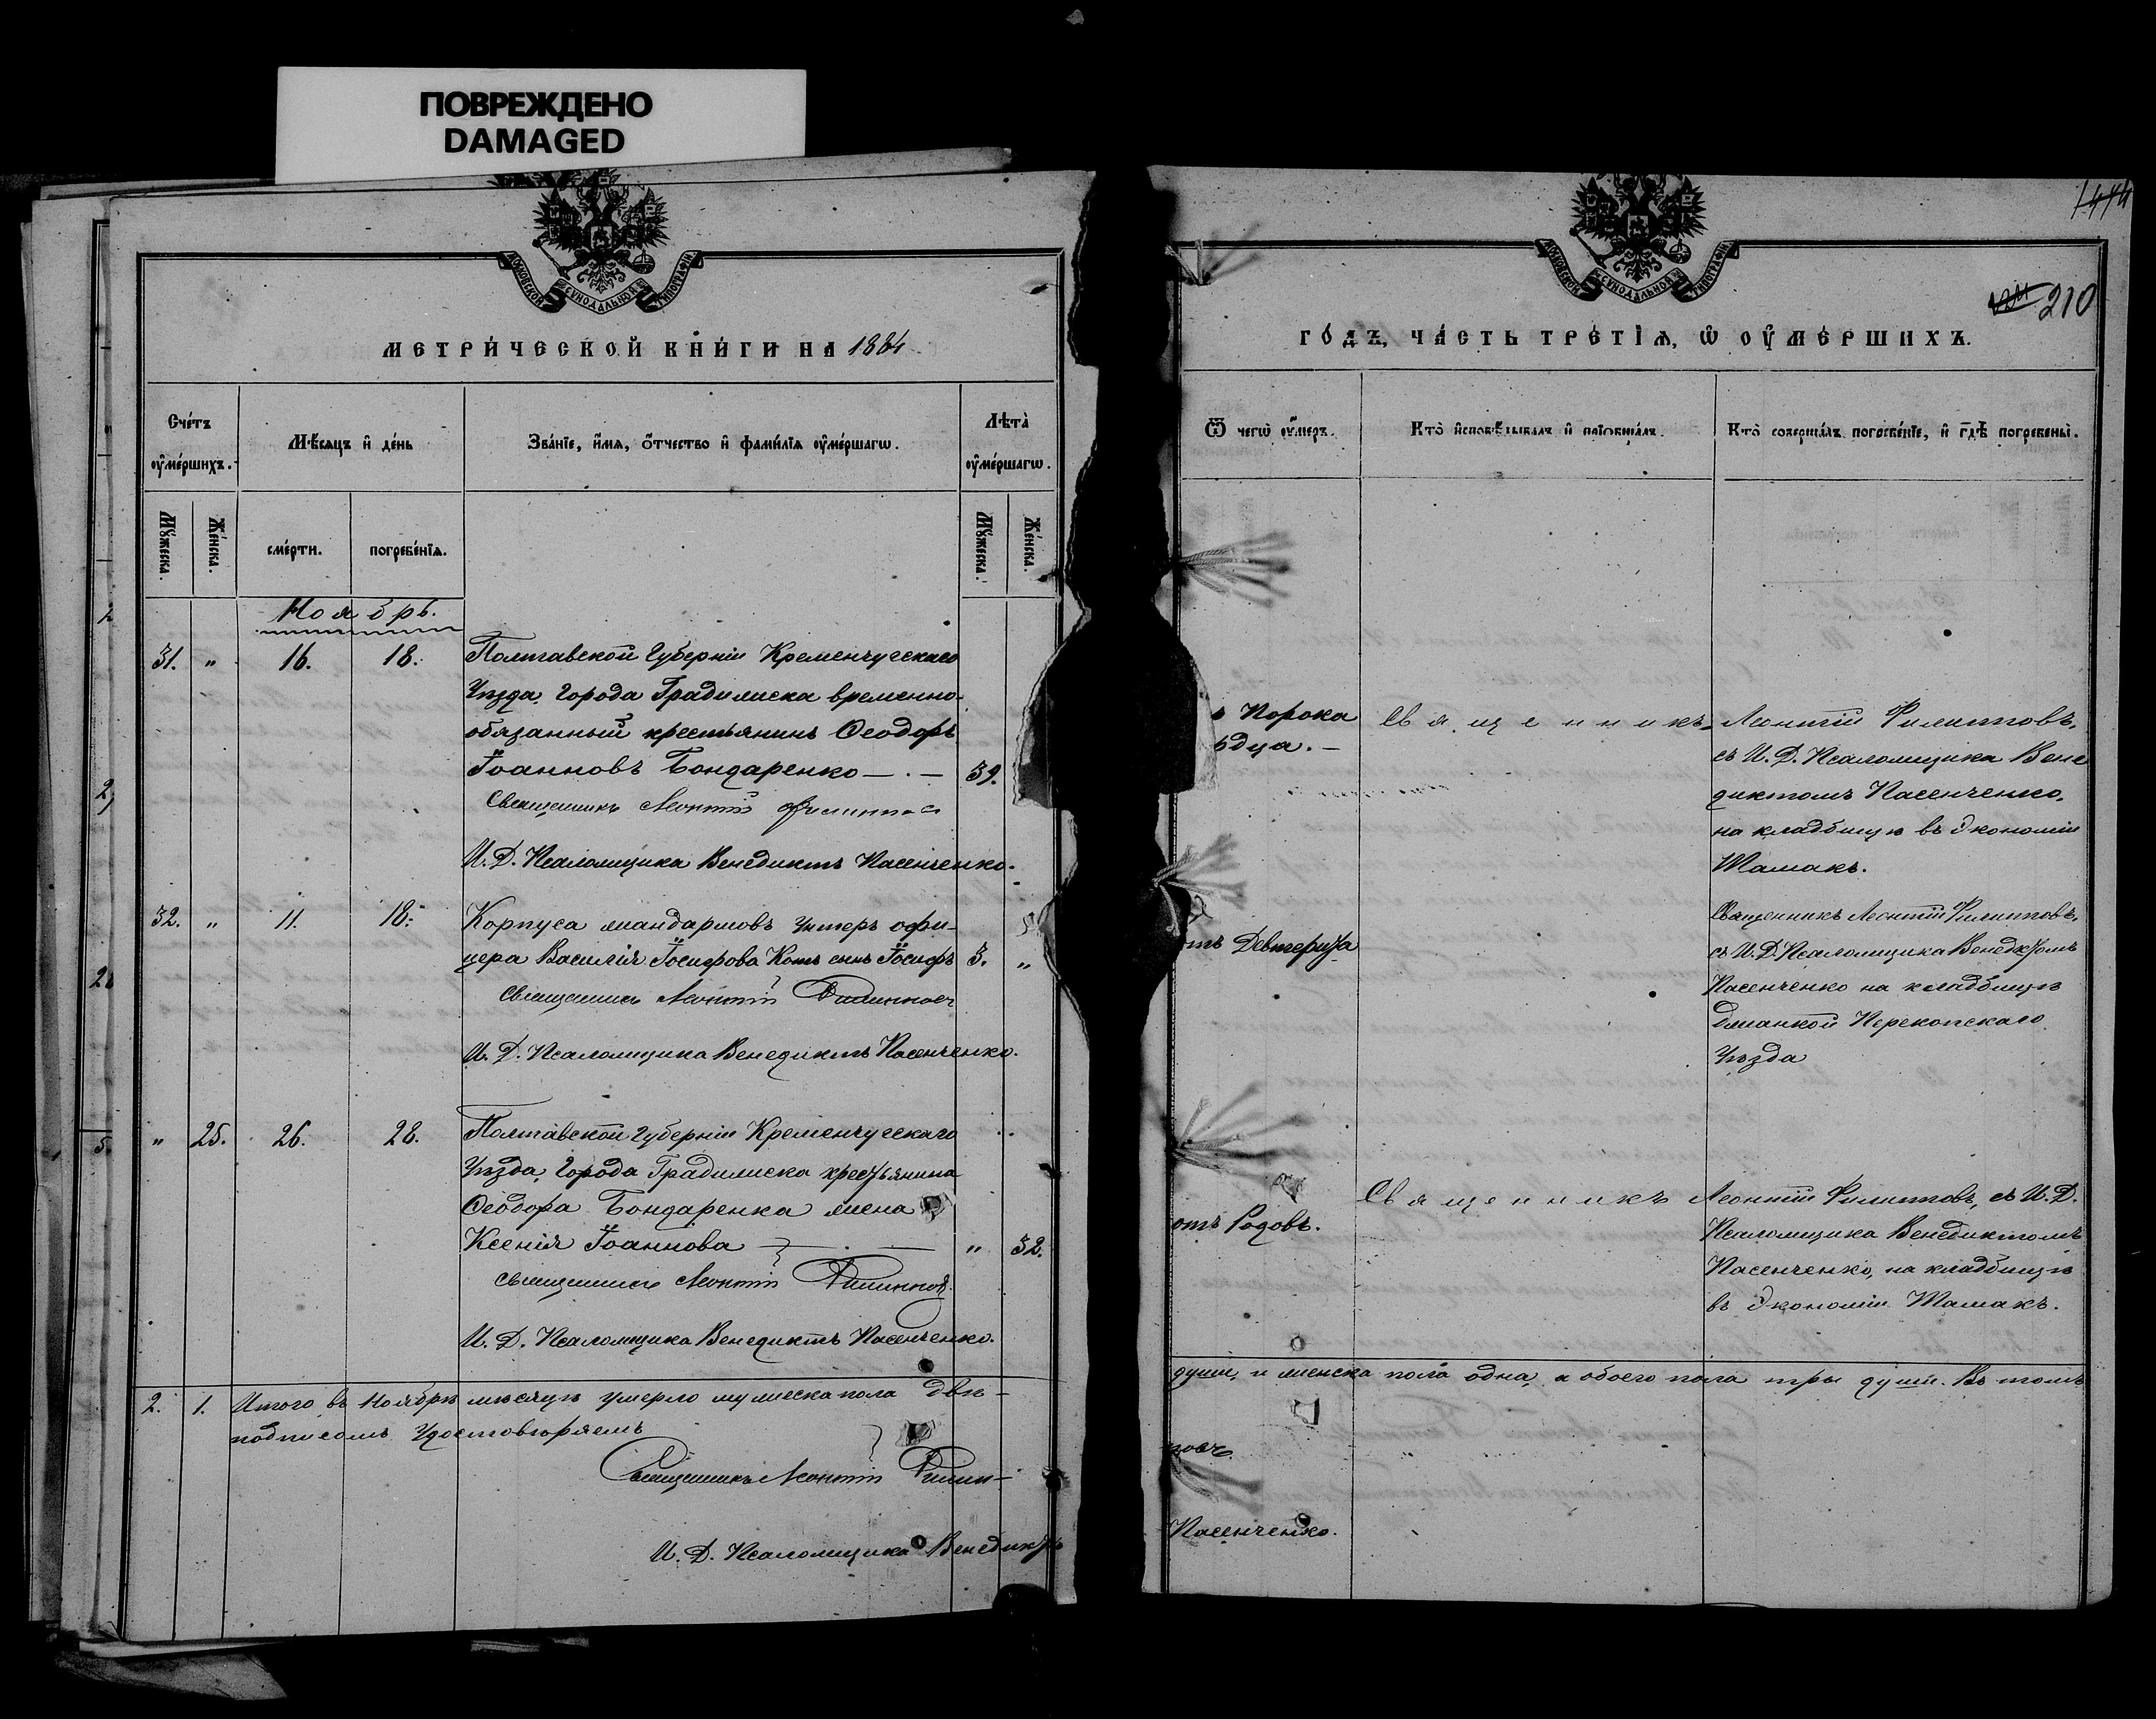 ПОВРЕЖДЕНО
DAMAGED
МОСКОВСКОЙ СѴНОДАЛЬНОЙ ТИПОГРАФІИ
МЕТРИ́ЧЕСКОЙ КНИ́ГИ НА 1884
Сче́тъ оу҆ме́ршихъ.
Мѣ́сяцъ и҆ де́нь
Зва́нїе, и҆́мѧ, ѻ҆́тчество и҆ фами́лїѧ оу҆ме́ршагѡ.
Лѣта̀ оу҆ме́ршагѡ.
Мꙋ́жеска.
Же́нска.
сме́рти.
погребе́нїѧ.
Мꙋ́жеска.
Же́нска.
Ноябрь.
31. " 16. 18. Полтавской Губерніи Кременчугскаго
Уѣзда, Города Градижска временно-
обязанный крестьянинъ Ѳеодоръ
Іоанновъ Бондаренко — . — 39.
Священникъ Леонтій Филиппов
И. Д. Псаломщика Венедиктъ Пасенченко.
32. " 11. 18. Корпуса жандармовъ Унтеръ офи-
цера Василія Іосифова Котъ сынъ Іосифъ 3. "
Священникъ Леонтій Филиппов
И. Д. Псаломщика Венедиктъ Пасенченко.
" 25. 26. 28. Полтавской Губерніи Кременчугскаго
Уѣзда, Города Градижска крестьянина
Ѳеодора Бондаренка жена
Ксенія Іоаннова — . — " 32.
Священникъ Леонтій Филиппов
И. Д. Псаломщика Венедиктъ Пасенченко.
2. 1. Итого въ Ноябрѣ мѣсяцѣ умерло мужеска пола двѣ-
подписомъ Удостовѣряемъ
Священникъ Леонтій Филип-
И. Д. Псаломщика Венедиктъ
210
МОСКОВСКОЙ СѴНОДАЛЬНОЙ ТИПОГРАФІИ
ГО́ДЪ, ЧА́СТЬ ТРЕ́ТІѦ, Ѡ҆ ОУ҆МЕ́РШИХЪ.
Ѿ чегѡ̀ оу҆́меръ.
Кто̀ и҆сповѣ́дывалъ и҆ прїѡбща́лъ.
Кто̀ соверша́лъ погребе́нїе, и҆ гдѣ̀ погребены̀.
Порока
рдца. —
Священникъ Леонтій Филипповъ,
съ И. Д. Псаломщика Вене
диктомъ Пасенченко,
на кладбищѣ въ Экономіи
Шамакъ.
отъ Девтерита
Священникъ Леонтій Филипповъ,
съ И. Д. Псаломщика Венедктомъ
Пасенченко на кладбищѣ
Перекопскаго
Уѣзда
отъ Родовъ.
Священникъ Леонтій Филипповъ, съ И. Д.
Псаломщика Венедиктомъ
Пасенченко, на кладбищѣ
въ Экономіи Шамакъ.
души, и женска пола одна, а обоего пола три души. Въ томъ
повъ
Пасенченко.